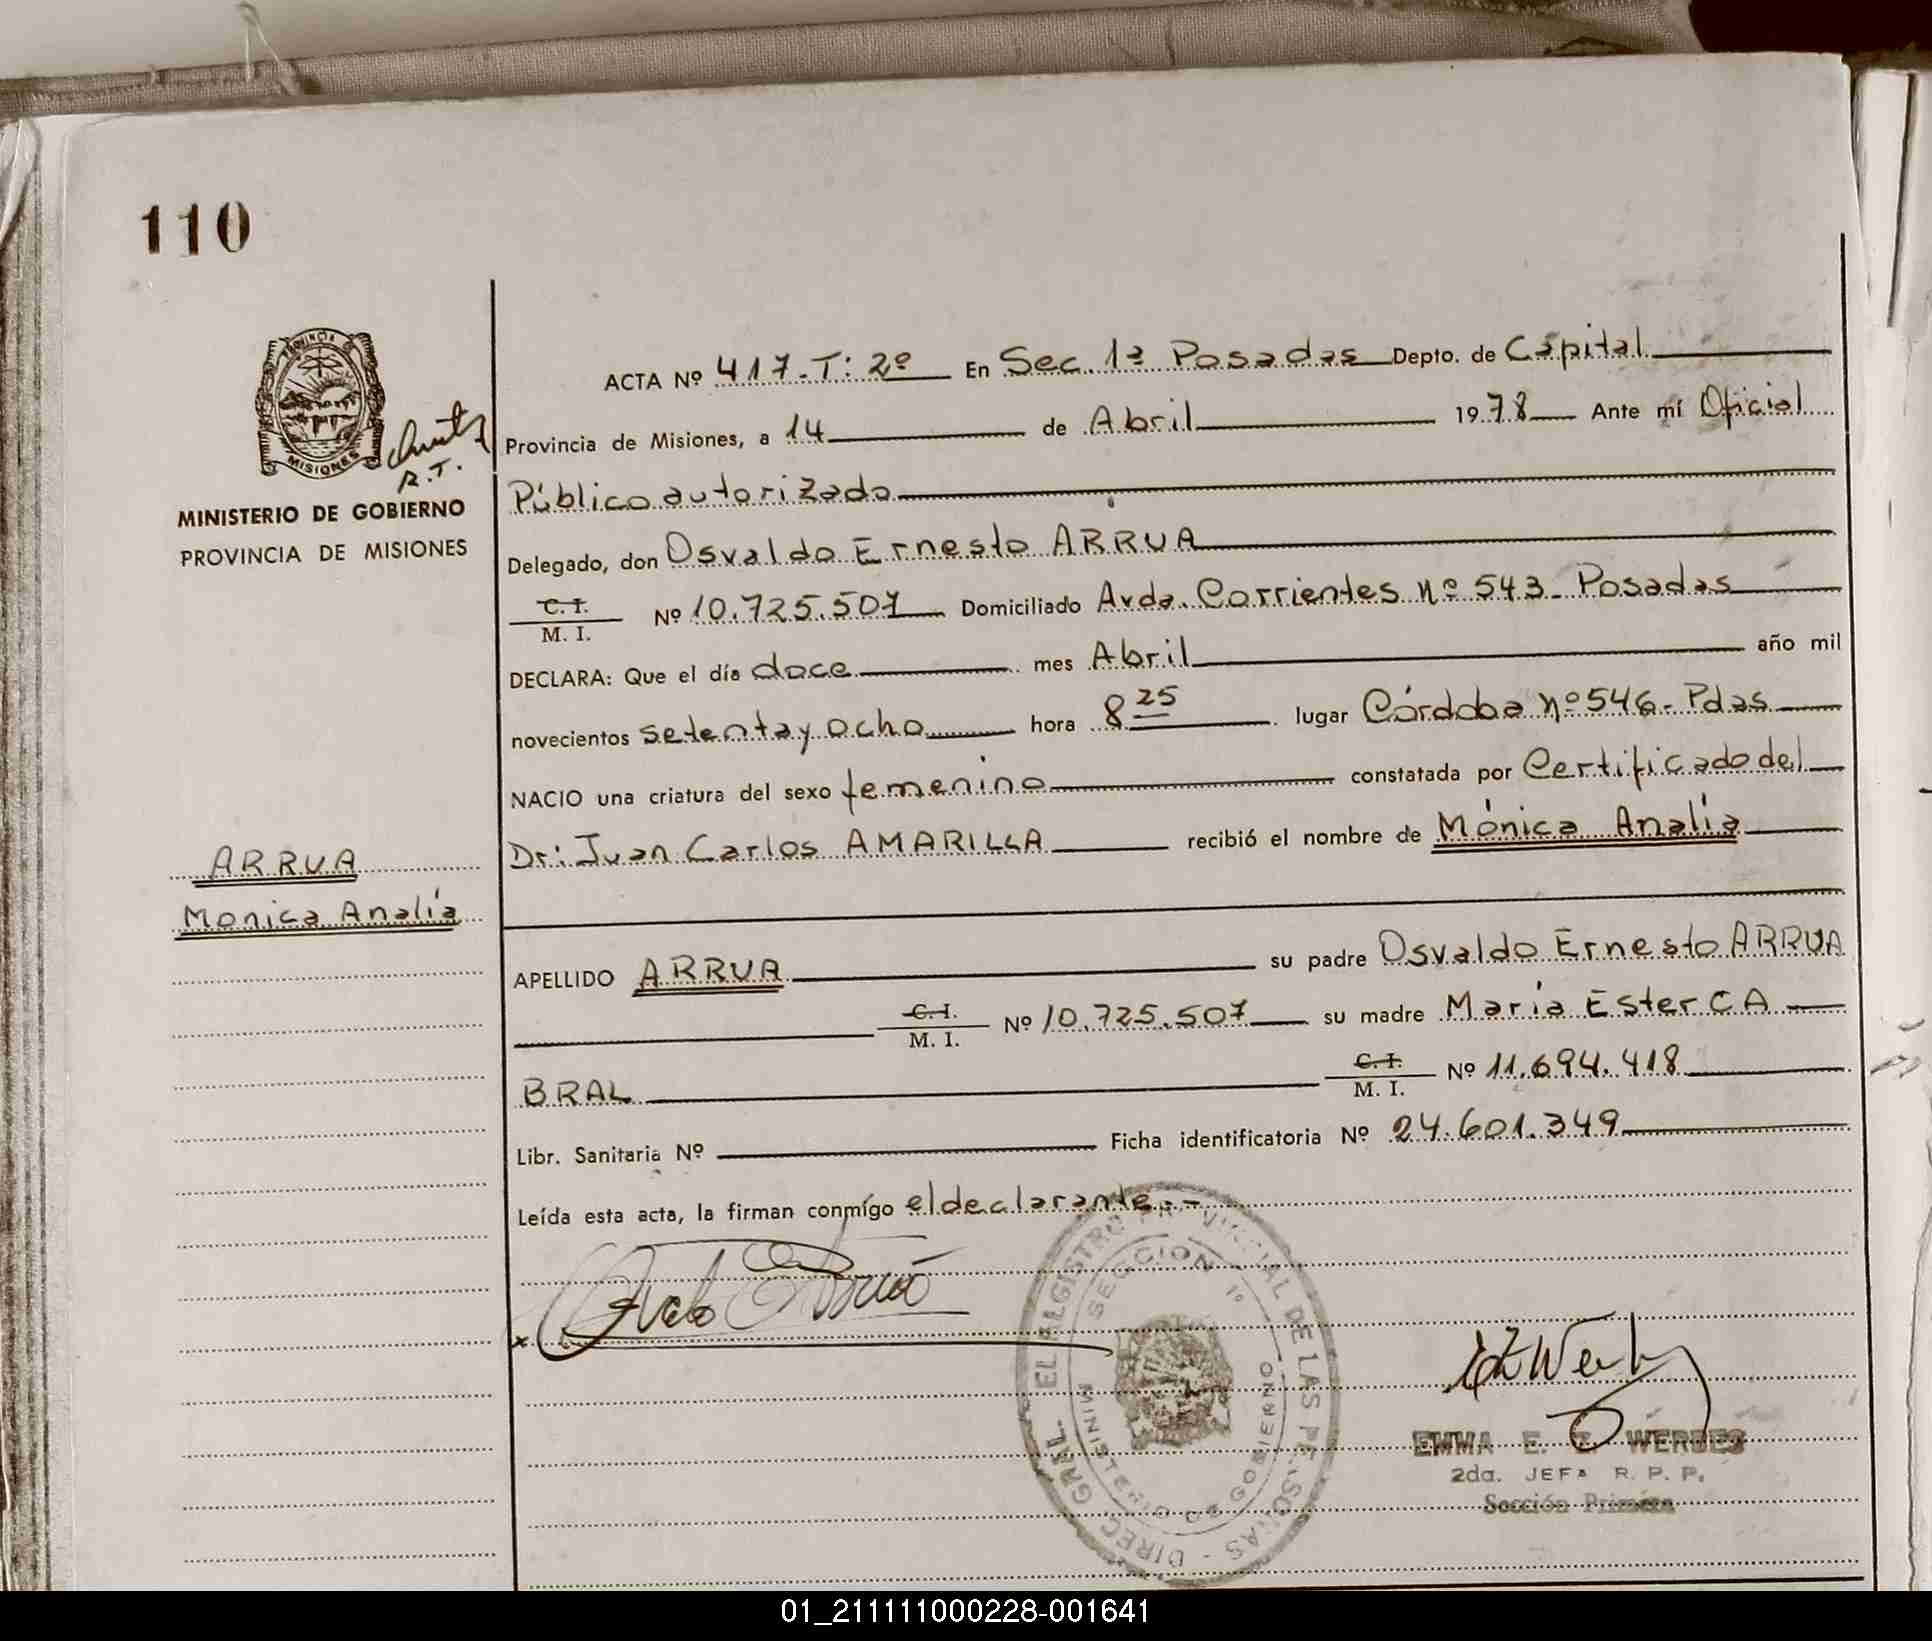 110
PROVINCIA DE
MISIONES
R.T.
MINISTERIO DE GOBIERNO
PROVINCIA DE MISIONES
ARRUA
Monica Analía
ACTA Nº 417.T: 2º En Sec. 1ª Posadas Depto. de Capital
Provincia de Misiones, a 14 de Abril 1978 Ante mí Oficial
Público autorizado
Delegado, don Osvaldo Ernesto ARRUA
C. I. / M. I. Nº 10.725.507 Domiciliado Avda. Corrientes nº 543- Posadas
DECLARA: Que el día doce mes Abril año mil
novecientos setenta y ocho hora 8 25 lugar Córdoba nº 546- Pdas
NACIO una criatura del sexo femenino constatada por Certificado del
Dr: Juan Carlos AMARILLA recibió el nombre de Mónica Analía
APELLIDO ARRUA su padre Osvaldo Ernesto ARRUA
C. I. / M. I. Nº 10.725.507 su madre María Ester CA
BRAL C. I. / M. I. Nº 11.694.418
Libr. Sanitaria Nº Ficha identificatoria Nº 24.601.349
Leída esta acta, la firman conmígo el declarante.-
DIREC. GRAL. DEL REGISTRO PROVINCIAL DE LAS PERSONAS -
SECCION 1º
MINISTERIO DE GOBIERNO
EMMA E. Z. WERBES
2da. JEFA R. P. P.
Sección Primera
01_211111000228-001641